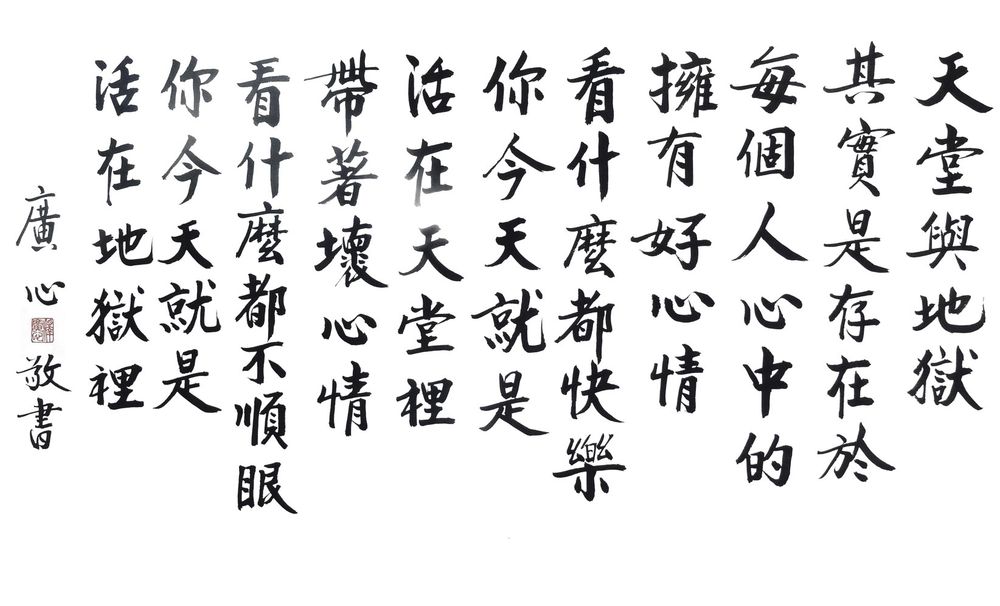 天堂與地獄
其實是存在於
每個人心中的
擁有好心情
看什麼都快樂
你今天就是
活在天堂裡
帶著壞心情
看什麼都不順眼
你今天就是
活在地獄裡
廣心敬書